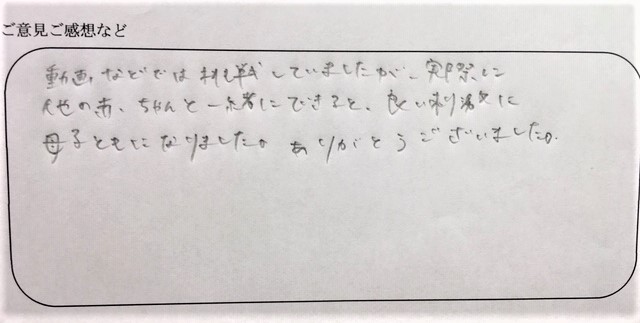 ご意見ご感想など
動画などでは挑戦していましたが、実際に
他の赤ちゃんと一緒にできると、良い刺激に
母子ともになりました。ありがとうございました。